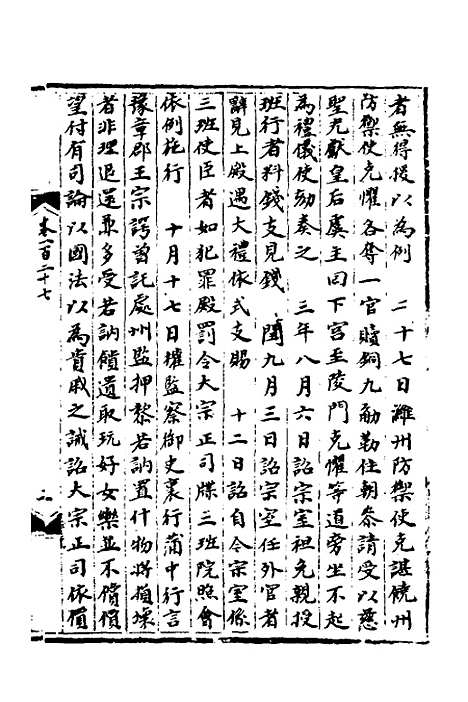 者無得援以為例　二十七日濰州防禦使克諶饒州
防禦使克懼各奪一官贖銅九觔勒住朝叅請受以慈
聖光獻皇后虞主回下宮至陵門克懼等道旁坐不起
為禮儀使劾奏之　三年八月六日詔宗室袒免親授
班行者料錢支見錢　閏九月三日詔宗室任外官者
辭見上殿遇大禮依式支賜　十二日詔自今宗室係
三班使臣者如犯罪殿罰令大宗正司牒三班院照會
依例施行　十月十七日權監察御史裏行蒲中行言
豫章郡王宗諤曽託處州監押黎若訥置什物將損壞
者非理退還兼多受若訥饋遺取玩好女樂並不償價
望付有司論以國法以為貴戚之誡詔大宗正司依價
卷一百二十七
二